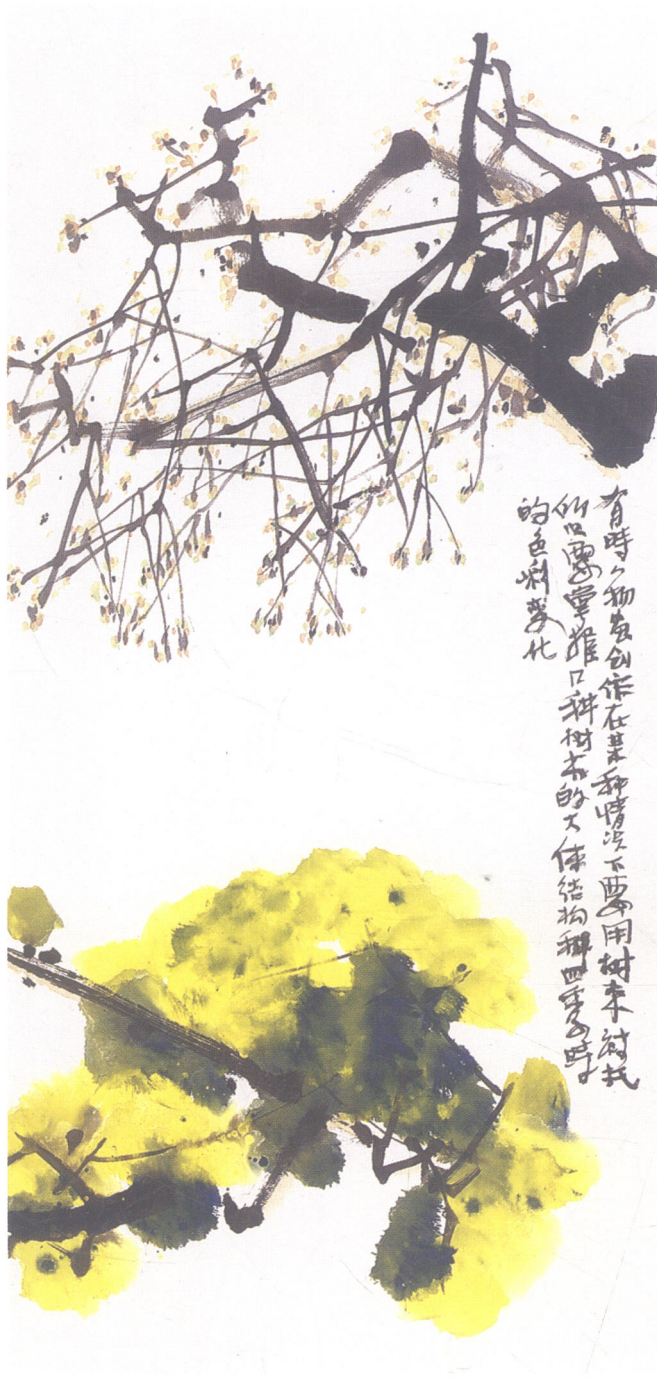 有時人物画創作在某种情况下要用樹来衬托
所以要掌握几种樹木的大体结构和四季時
的色彩变化